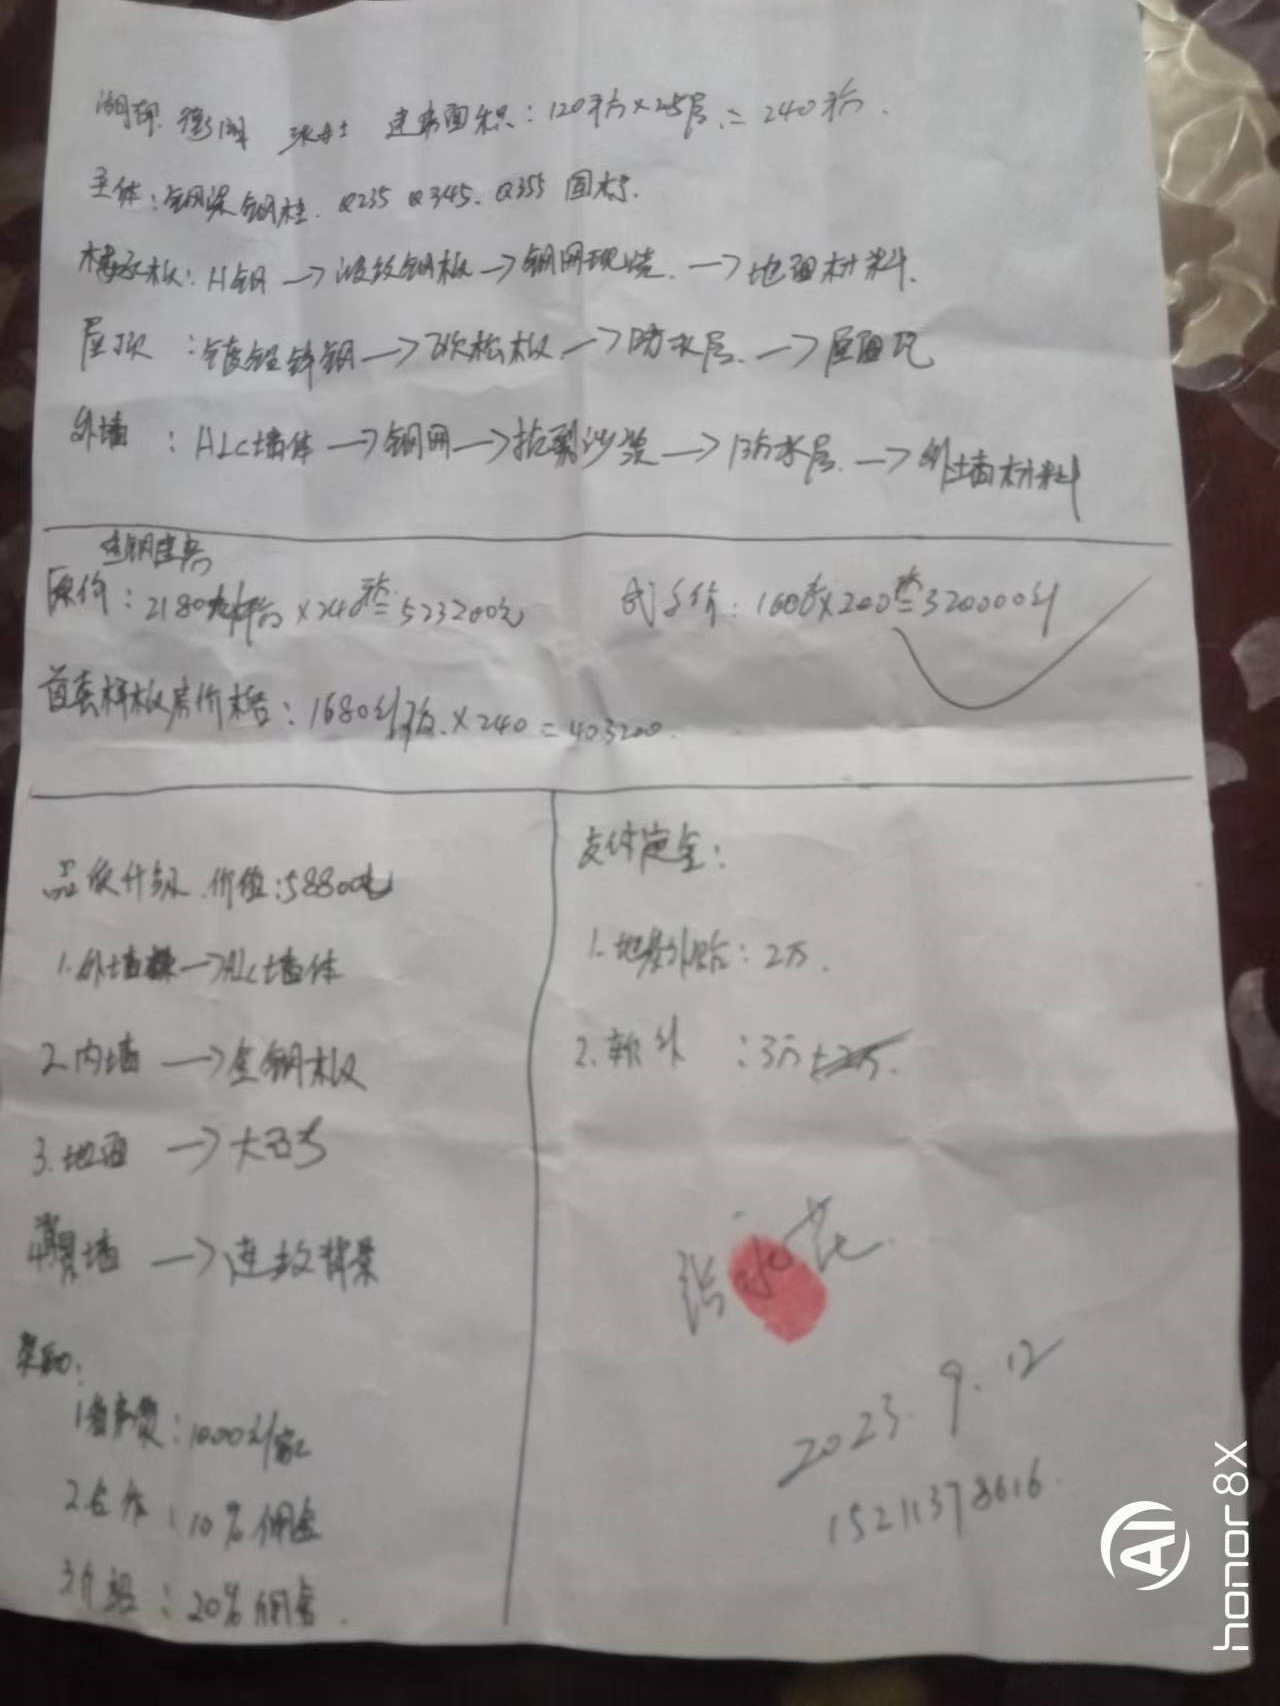 建房面积：120平方×2层=240平方.
主体：钢梁钢柱. Q235 Q345. Q355 国标.
楼承板：H钢→波纹钢板→钢网现浇.→地面材料.
屋顶：镀铝锌钢→欧松板→防水层.→屋面瓦
外墙：ALC墙体→钢网→抗裂沙浆→防水层.→外墙材料
轻钢
原价：2180元/平方×240平=523200元
价：1600元×200平=320000元
首套样板房价格：1680元/平方.×240=403200.
品质升级.价值：58800元
1.外墙→ALC墙体
2.内墙→金钢板
3.地面→大石
墙→背景
奖励：
1.看房费：1000元/家
2.合作：10%佣金
3.介绍：20%佣金.
支付定金：
1.地基补贴：2万.
2.软：3万
张花
2023.9.12
15211378616.
honor 8X
AI